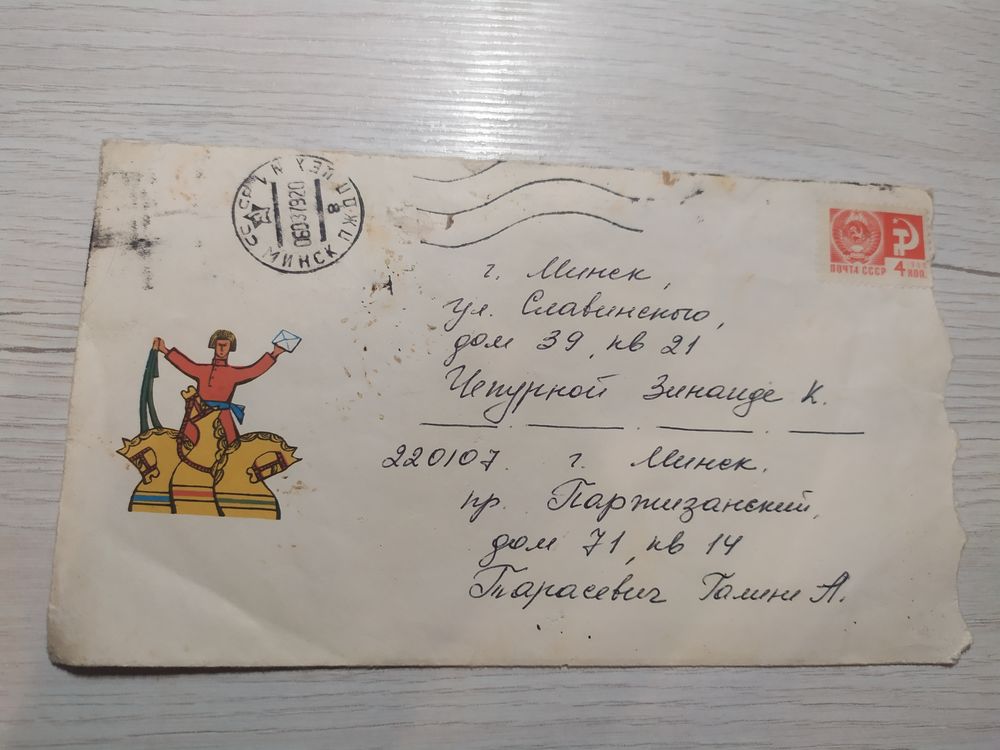 СССР
МИНСК
06037920
8
ПОЧТА СССР
4 КОП.
г. Минск,
ул. Славинского,
дом 39, кв 21
Чепурной Зинаиде К.
220107. г. Минск.
пр. Партизанский,
дом 71, кв 14
Тарасевич Галине А.